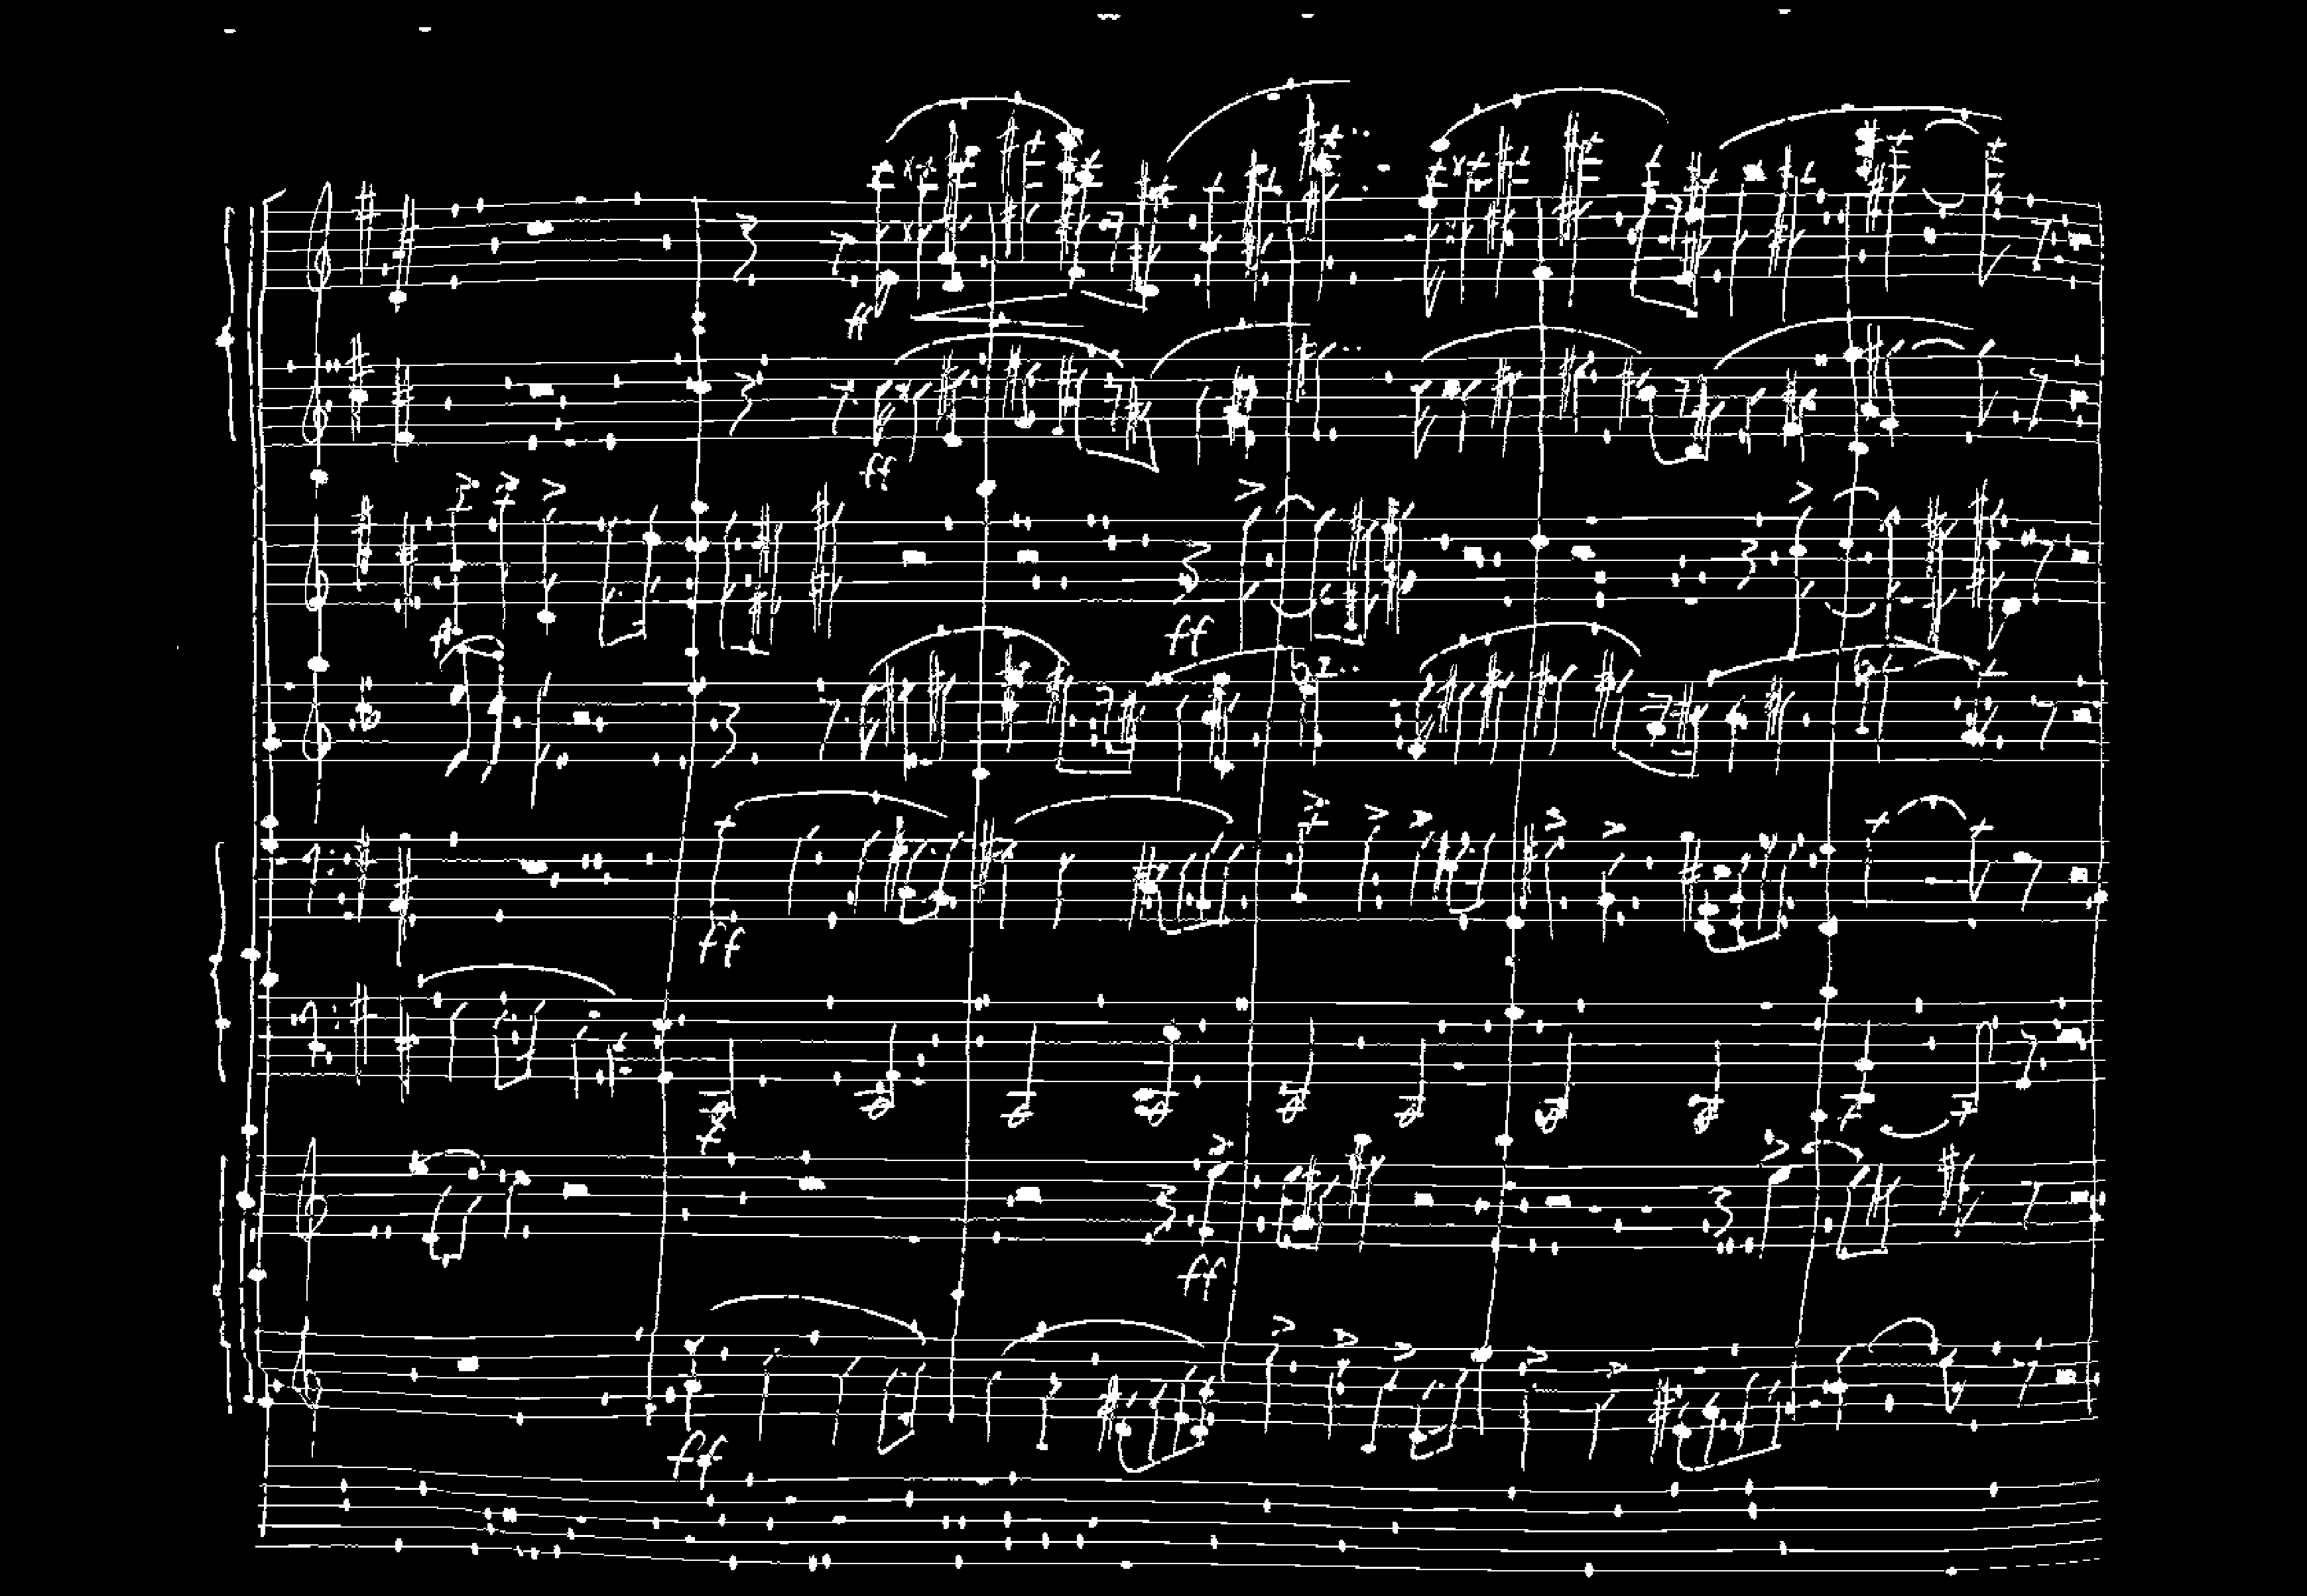 ff
ff
ff
ff
ff
ff